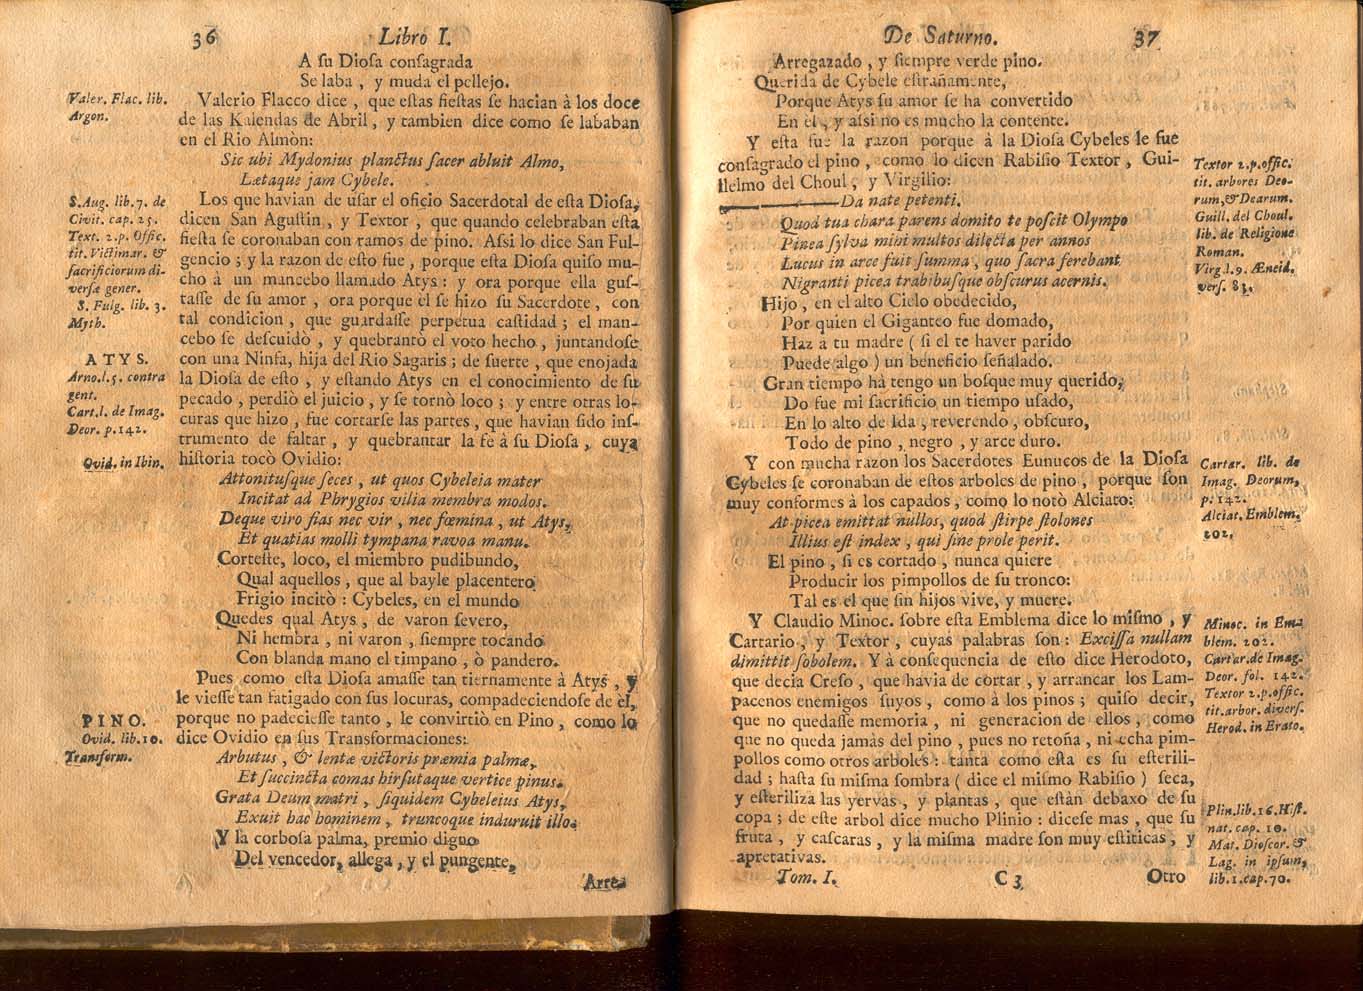 36 Libro I.
A ſu Dioſa conſagrada
Se laba, y muda el pellejo.
Valer. Flac. lib.
Argon.
Valerio Flacco dice, que eſtas fieſtas ſe hacian à los doce
de las Kalendas de Abril, y tambien dice como ſe lababan
en el Rio Almòn:
Sic ubi Mydonius planctus ſacer abluit Almo,
Lætaque jam Cybele.
S. Aug. lib. 7. de
Civit. cap. 25.
Text. 2. p. Offic.
tit. Victimar. &
ſacrificiorum di-
verſæ gener.
S. Fulg. lib. 3.
Myth.
Los que havian de uſar el oficio Sacerdotal de eſta Dioſa,
dicen San Aguſtin, y Textor, que quando celebraban eſta
fieſta ſe coronaban con ramos de pino. Aſsi lo dice San Ful-
gencio; y la razon de eſto fue, porque eſta Dioſa quiſo mu-
cho à un mancebo llamado Atys: y ora porque ella guſ-
taſſe de ſu amor, ora porque el ſe hizo ſu Sacerdote, con
tal condicion, que guardaſſe perpetua caſtidad; el man-
cebo ſe deſcuidò, y quebrantò el voto hecho, juntandoſe
con una Ninfa, hija del Rio Sagaris; de ſuerte, que enojada
la Dioſa de eſto, y eſtando Atys en el conocimiento de ſu
pecado, perdiò el juicio, y ſe tornò loco; y entre otras lo-
curas que hizo, fue cortarſe las partes, que havian ſido inſ-
trumento de faltar, y quebrantar la fe à ſu Dioſa, cuya
hiſtoria tocò Ovidio:
ATYS.
Arno. l. 5. contra
gent.
Cart. l. de Imag.
Deor. p. 142.
Ovid. in Ibin.
Attonituſque ſeces, ut quos Cybeleia mater
Incitat ad Phrygios vilia membra modos.
Deque viro fias nec vir, nec fœmina, ut Atys,
Et quatias molli tympana ravoa manu.
Corteſte, loco, el miembro pudibundo,
Qual aquellos, que al bayle placentero
Frigio incitò: Cybeles, en el mundo
Quedes qual Atys, de varon ſevero,
Ni hembra, ni varon, ſiempre tocando
Con blanda mano el timpano, ò pandero.
Pues como eſta Dioſa amaſſe tan tiernamente à Atys, y
le vieſſe tan fatigado con ſus locuras, compadeciendoſe de èl,
porque no padecieſſe tanto, le convirtiò en Pino, como lo
dice Ovidio en ſus Transformaciones:
PINO.
Ovid. lib. 10.
Transform.
Arbutus, & lentæ victoris præmia palmæ,
Et ſuccincta comas hirſutaque vertice pinus.
Grata Deum matri, ſiquidem Cybeleius Atys,
Exuit hac hominem, truncoque induruit illo.
Y la corboſa palma, premio digno
Del vencedor, allega, y el pungente,
Arre-
De Saturno. 37
Arregazado, y ſiempre verde pino.
Querida de Cybele eſtrañamente,
Porque Atys ſu amor ſe ha convertido
En èl, y aſsi no es mucho la contente.
Y eſta fue la razon porque à la Dioſa Cybeles le fue
conſagrado el pino, como lo dicen Rabiſio Textor, Gui-
llelmo del Choul, y Virgilio:
Textor 2. p. offic.
tit. arbores Deo-
rum, & Dearum.
Guill. del Choul.
lib. de Religione
Roman.
Virg. l. 9. Æneid.
verſ. 83.
Da nate petenti.
Quod tua chara parens domito te poſcit Olympo
Pinea ſylva mihi multos dilecta per annos
Lucus in arce fuit ſumma, quo ſacra ferebant
Nigranti picea trabibuſque obſcurus acernis.
Hijo, en el alto Cielo obedecido,
Por quien el Giganteo fue domado,
Haz a tu madre (ſi el te haver parido
Puede algo) un beneficio ſeñalado.
Gran tiempo hà tengo un boſque muy querido,
Do fue mi ſacrificio un tiempo uſado,
En lo alto de Ida, reverendo, obſcuro,
Todo de pino, negro, y arce duro.
Y con mucha razon los Sacerdotes Eunucos de la Dioſa
Cybeles ſe coronaban de eſtos arboles de pino, porque ſon
muy conformes à los capados, como lo notò Alciato:
Cartar. lib. de
Imag. Deorum,
p. 142.
Alciat. Emblem.
202.
At picea emittat nullos, quod ſtirpe ſtolones
Illius eſt index, qui ſine prole perit.
El pino, ſi es cortado, nunca quiere
Producir los pimpollos de ſu tronco:
Tal es el que ſin hijos vive, y muere.
Y Claudio Minoc. ſobre eſta Emblema dice lo miſmo, y
Cartario, y Textor, cuyas palabras ſon: Exciſſa nullam
dimittit ſobolem. Y à conſequencia de eſto dice Herodoto,
que decia Creſo, que havia de cortar, y arrancar los Lam-
pacenos enemigos ſuyos, como à los pinos; quiſo decir,
que no quedaſſe memoria, ni generacion de ellos, como
que no queda jamàs del pino, pues no retoña, ni echa pim-
pollos como otros arboles: tanta como eſta es ſu eſterili-
dad; haſta ſu miſma ſombra (dice el miſmo Rabiſio) ſeca,
y eſteriliza las yervas, y plantas, que eſtàn debaxo de ſu
copa; de eſte arbol dice mucho Plinio: diceſe mas, que ſu
fruta, y caſcaras, y la miſma madre ſon muy eſtiticas, y
apretativas.
Minoc. in Em-
blem. 202.
Cartar. de Imag.
Deor. fol. 142.
Textor 2. p. offic.
tit. arbor. diverſ.
Herod. in Erato.
Plin. lib. 16. Hiſt.
nat. cap. 10.
Mat. Dioſcor. &
Lag. in ipſum,
lib. 1. cap. 70.
Tom. I. C 3 Otro